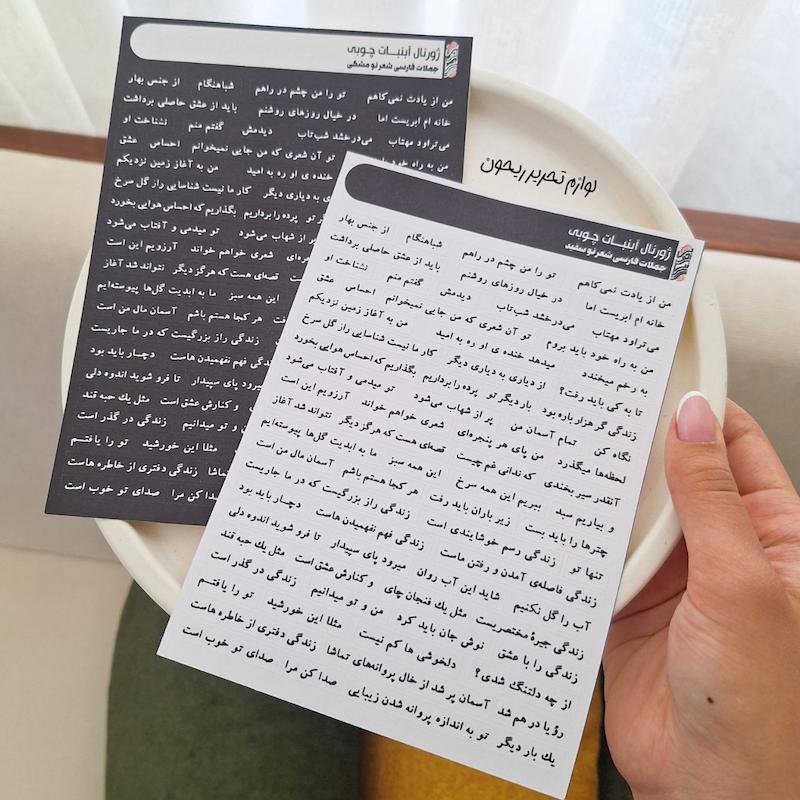 ژورنال آبنبات چوبی
جملات فارسی شعر نو مشکی
من از یادت نمی‌کاهم تو را من چشم در راهم شباهنگام از جنس بهار
خانه ام ابریست اما در خیال روزهای روشنم باید از عشق حاصلی برداشت
می تراود مهتاب می‌درخشد شب‌تاب دیدمش گفتم منم نشناخت او
من به راه خود تو آن شعری که من جایی نمیخوانم احساس عشق
خنده ی او ره به امید من به آغاز زمین نزدیکم
به دیاری دیگر کار ما نیست شناسایی راز گل سرخ
تو پرده را برداریم بگذاریم که احساس هوایی بخورد
از شهاب می‌شود تو میدمی و آفتاب می‌شود
شعری خواهم خواند آرزویم این است
قصه‌ای هست که هرگز دیگر نتواند شد آغاز
این همه سبز ما به ابدیت گل‌ها پیوسته‌ایم
هر کجا هستم باشم آسمان مال من است
زندگی راز بزرگیست که در ما جاریست
فهم نفهمیدن هاست دچار باید بود
میرود پای سپیدار تا فرو شوید اندوه دلی
و کنارش عشق است مثل یک حبه قند
و تو میدانیم زندگی در گذر است
مثلا این خورشید تو را یافتم
زندگی دفتری از خاطره هاست
صدا کن مرا صدای تو خوب است
لوازم تحریر ریحون
ژورنال آبنبات چوبی
جملات فارسی شعر نو سفید
من از یادت نمی‌کاهم تو را من چشم در راهم شباهنگام از جنس بهار
خانه ام ابریست اما در خیال روزهای روشنم باید از عشق حاصلی برداشت
می تراود مهتاب می‌درخشد شب‌تاب دیدمش گفتم منم نشناخت او
من به راه خود باید بروم تو آن شعری که من جایی نمیخوانم احساس عشق
به رخم میخندد میدهد خنده ی او ره به امید من به آغاز زمین نزدیکم
تا به کی باید رفت؟ از دیاری به دیاری دیگر کار ما نیست شناسایی راز گل سرخ
زندگی گر هزار باره بود بار دیگر تو پرده را برداریم بگذاریم که احساس هوایی بخورد
نگاه کن تمام آسمان من پر از شهاب می‌شود تو میدمی و آفتاب می‌شود
لحظه‌ها میگذرد من پای هر پنجره‌ای شعری خواهم خواند آرزویم این است
آنقدر سیر بخندی که ندانی غم چیست قصه‌ای هست که هرگز دیگر نتواند شد آغاز
و بیاریم سبد ببریم این همه سرخ این همه سبز ما به ابدیت گل‌ها پیوسته‌ایم
چترها را باید بست زیر باران باید رفت هر کجا هستم باشم آسمان مال من است
تنها تو زندگی رسم خوشایندی است زندگی راز بزرگیست که در ما جاریست
زندگی فاصله‌ی آمدن و رفتن ماست زندگی فهم نفهمیدن هاست دچار باید بود
آب را گل نکنیم شاید این آب روان میرود پای سپیدار تا فرو شوید اندوه دلی
زندگی جیرهٔ مختصریست مثل یک فنجان چای و کنارش عشق است مثل یک حبه قند
زندگی را با عشق نوش جان باید کرد من و تو میدانیم زندگی در گذر است
از چه دلتنگ شدی؟ دلخوشی ها کم نیست مثلا این خورشید تو را یافتم
رؤیا در هم شد آسمان پر شد از خال پروانه‌های تماشا زندگی دفتری از خاطره هاست
یک بار دیگر تو به اندازه پروانه شدن زیبایی صدا کن مرا صدای تو خوب است